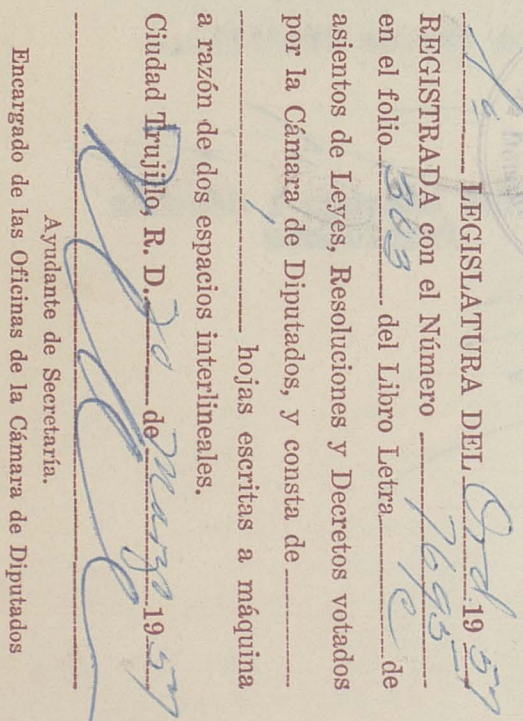 1ª LEGISLATURA DEL Ord. 1957
REGISTRADA con el Número 7695
en el folio 383 del Libro Letra C de
asientos de Leyes, Resoluciones y Decretos votados
por la Cámara de Diputados, y consta de
1 hojas escritas a máquina
a razón de dos espacios interlineales.
Ciudad Trujillo, R. D. 20 de Marzo 1957
Ayudante de Secretaría.
Encargado de las Oficinas de la Cámara de Diputados